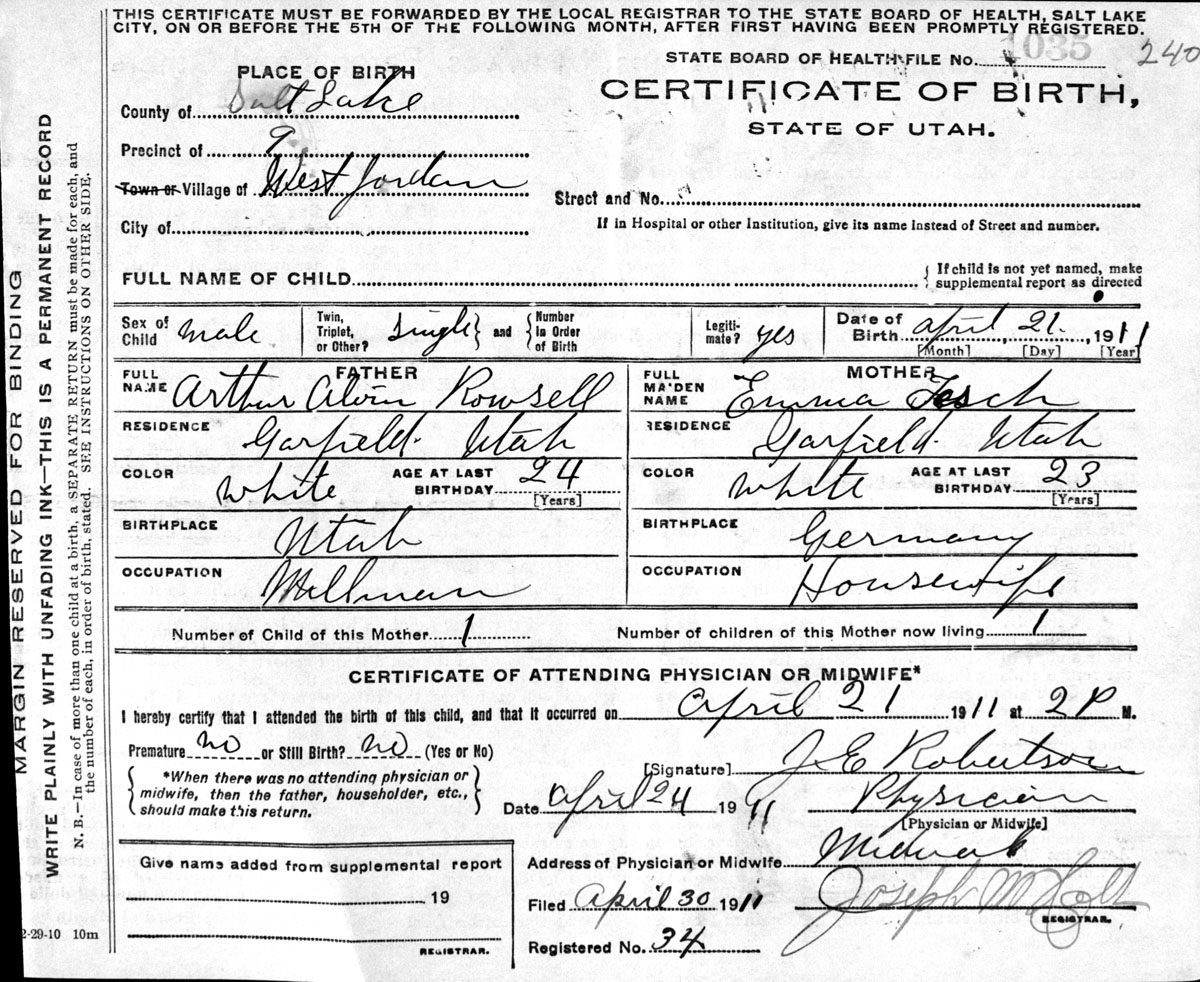 THIS CERTIFICATE MUST BE FORWARDED BY THE LOCAL REGISTRAR TO THE STATE BOARD OF HEALTH, SALT LAKE
CITY, ON OR BEFORE THE 5TH OF THE FOLLOWING MONTH, AFTER FIRST HAVING BEEN PROMPTLY REGISTERED.
STATE BOARD OF HEALTH FILE No. 1035 240
PLACE OF BIRTH
CERTIFICATE OF BIRTH,
STATE OF UTAH.
County of Salt Lake
Precinct of 9
Town or Village of West Jordan
Street and No.
City of
If in Hospital or other Institution, give its name instead of Street and number.
FULL NAME OF CHILD
If child is not yet named, make
supplemental report as directed
Sex of Child male Twin, Triplet, or Other? single and Number in Order of Birth Legiti-mate? yes Date of Birth april 21. , 1911
[Month] [Day] [Year]
FATHER MOTHER
FULL NAME Arthur Alvin Rowsell FULL MAIDEN NAME Emma Tesch
RESIDENCE Garfield Utah RESIDENCE Garfield Utah
COLOR white AGE AT LAST BIRTHDAY 24 [Years] COLOR white AGE AT LAST BIRTHDAY 23 [Years]
BIRTHPLACE Utah BIRTHPLACE Germany
OCCUPATION Millman OCCUPATION Housewife
Number of Child of this Mother 1 Number of children of this Mother now living 1
CERTIFICATE OF ATTENDING PHYSICIAN OR MIDWIFE*
I hereby certify that I attended the birth of this child, and that it occurred on april 21 1911 at 2 P M.
Premature no or Still Birth? no (Yes or No)
*When there was no attending physician or
midwife, then the father, householder, etc.,
should make this return.
[Signature] J. E. Robertson
Date april 24 1911 Physician
[Physician or Midwife]
Address of Physician or Midwife
Filed april 30 1911 Joseph M Holt
REGISTRAR.
Registered No. 34
Give name added from supplemental report
19
REGISTRAR.
2-29-10 10m
MARGIN RESERVED FOR BINDING
WRITE PLAINLY WITH UNFADING INK—THIS IS A PERMANENT RECORD
N. B.—In case of more than one child at a birth, a SEPARATE RETURN must be made for each, and
the number of each, in order of birth, stated. SEE INSTRUCTIONS ON OTHER SIDE.